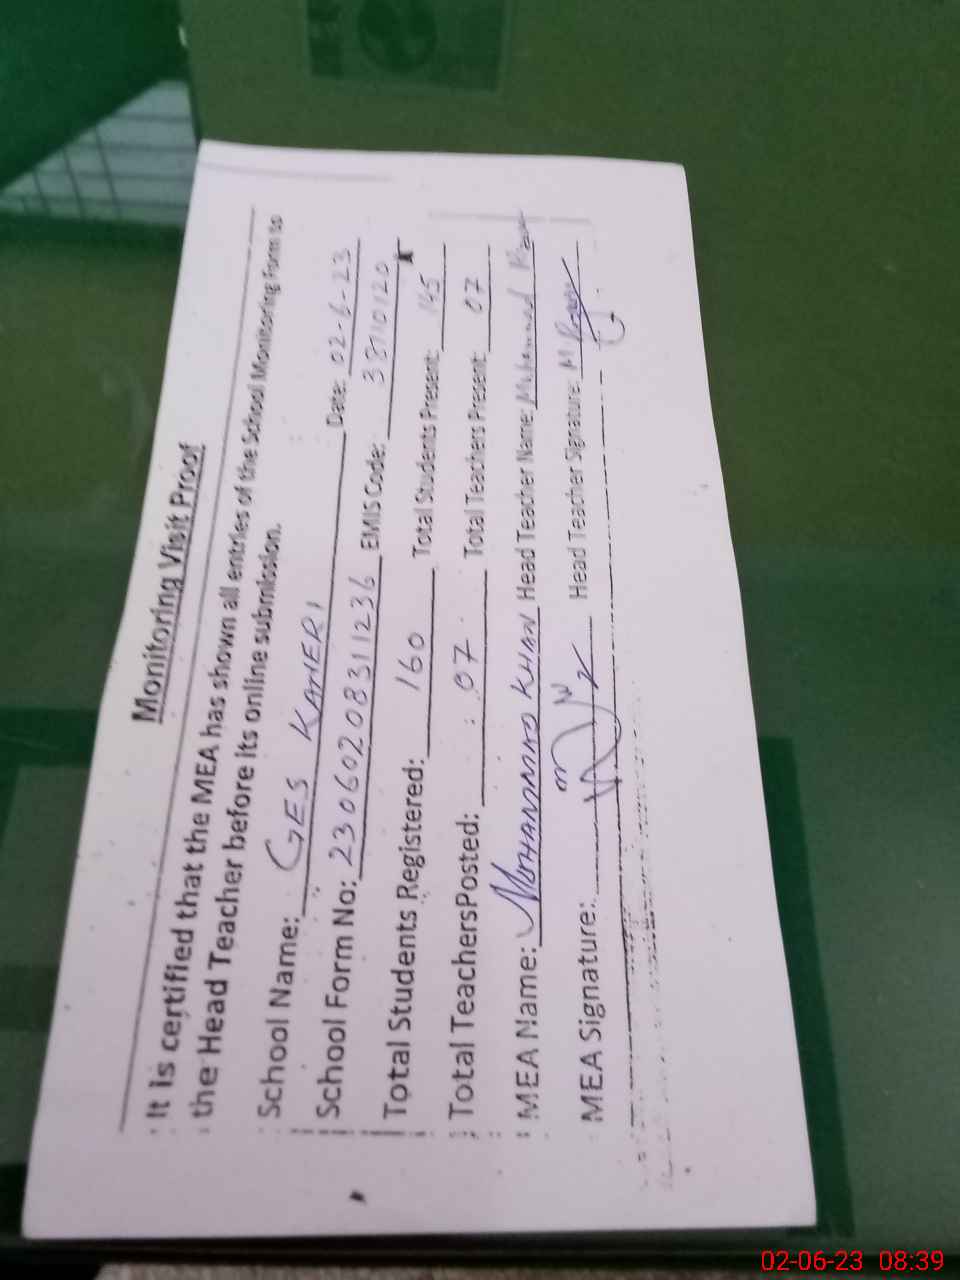 Monitoring Visit Proof
It is certified that the MEA has shown all entries of the School Monitoring Form to
the Head Teacher before its online submission.
School Name: GES KAHERI Date: 02-6-23
School Form No: 23060208311236 EMIS Code: 38110120
Total Students Registered: 160 Total Students Present: 145
Total TeachersPosted: 07 Total Teachers Present: 07
MEA Name: MOHAMMAD KHAN Head Teacher Name: Mohammad
MEA Signature: Head Teacher Signature:
02-06-23 08:39